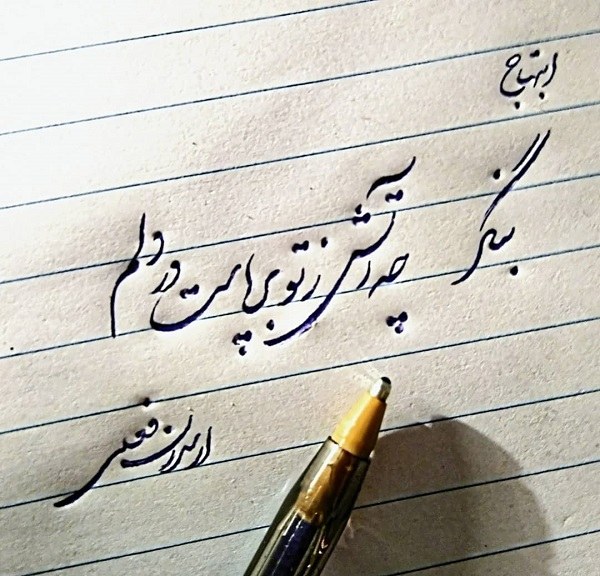 ابتهاج
بنگر چه آتشی ز تو برپاست در دلم